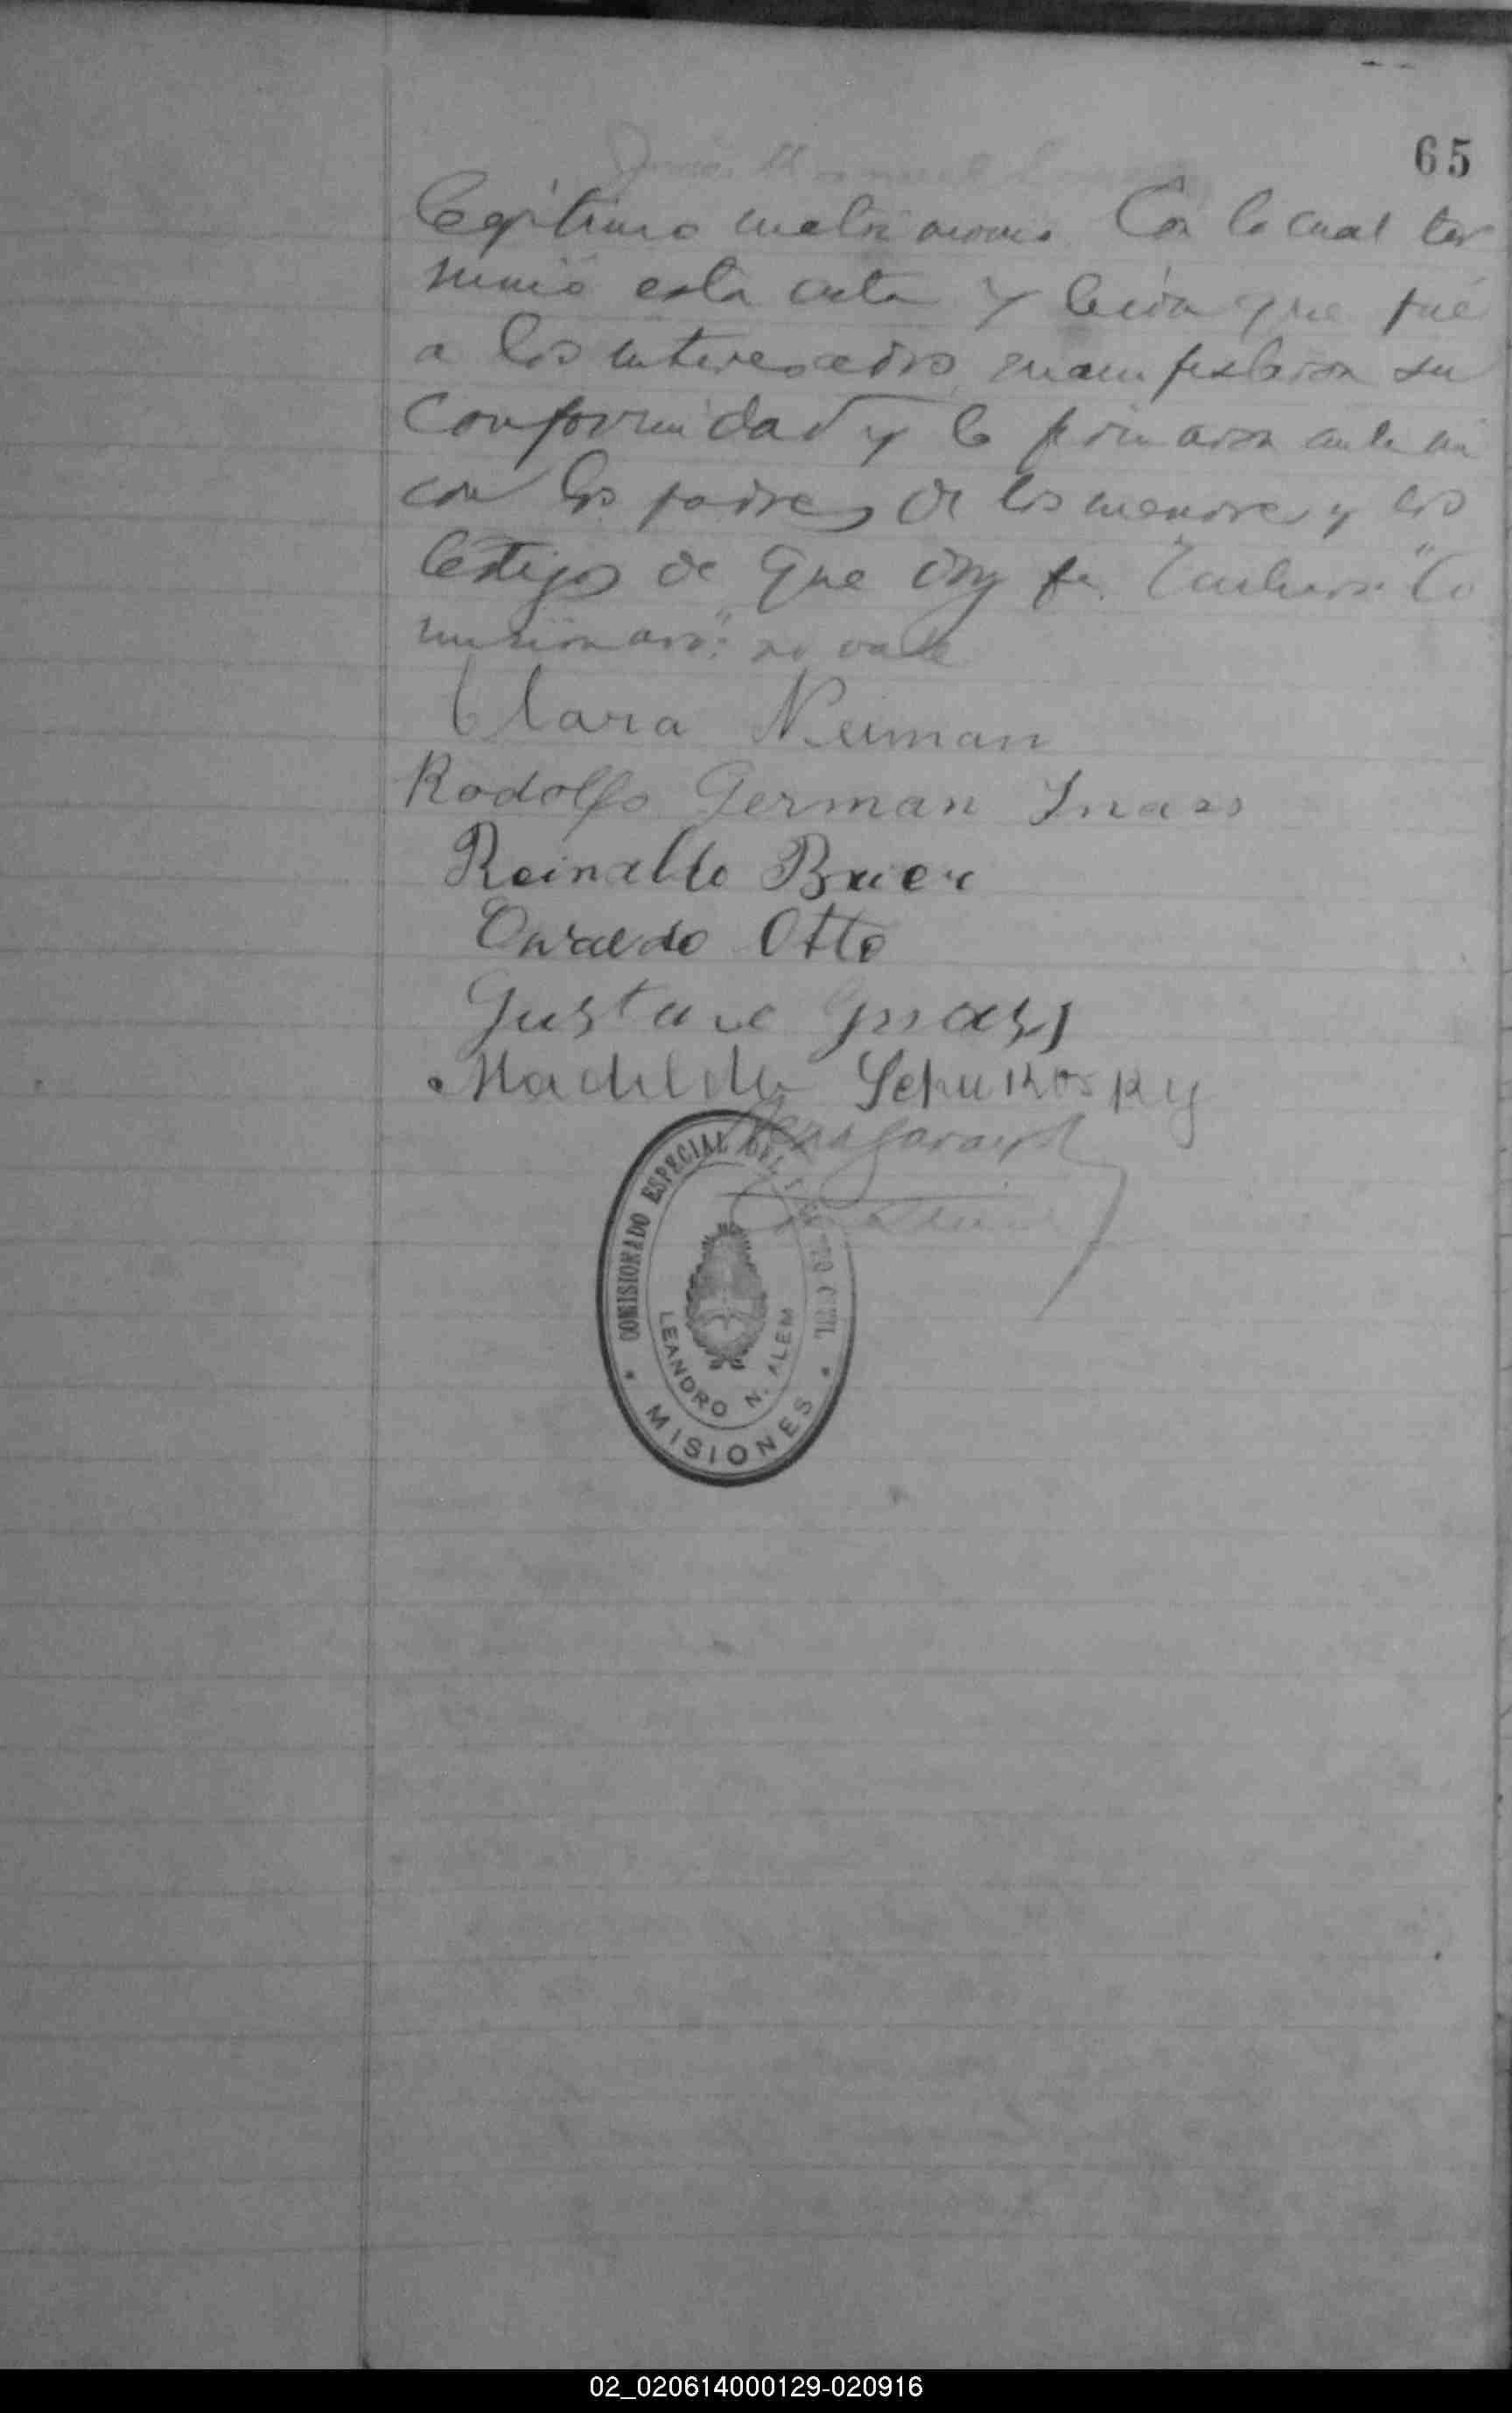 65
José Manuel
legitimo matrimonio Con lo cual ter
minó esta acta y leida que fué
a los interesados manifestaron su
conformidad y la firmaron ante mi
con los padres de los menores y los
testigos de que doy fe. "Co
misionado": no vale
Clara Neiman
Rodolfo German Gnass
Reinaldo Bauer
Osvaldo Otto
Gustavo Gnass
Madilda Schukosky
COMISIONADO ESPECIAL DEL CIVIL
LEANDRO N. ALEM
MISIONES
02_020614000129-020916